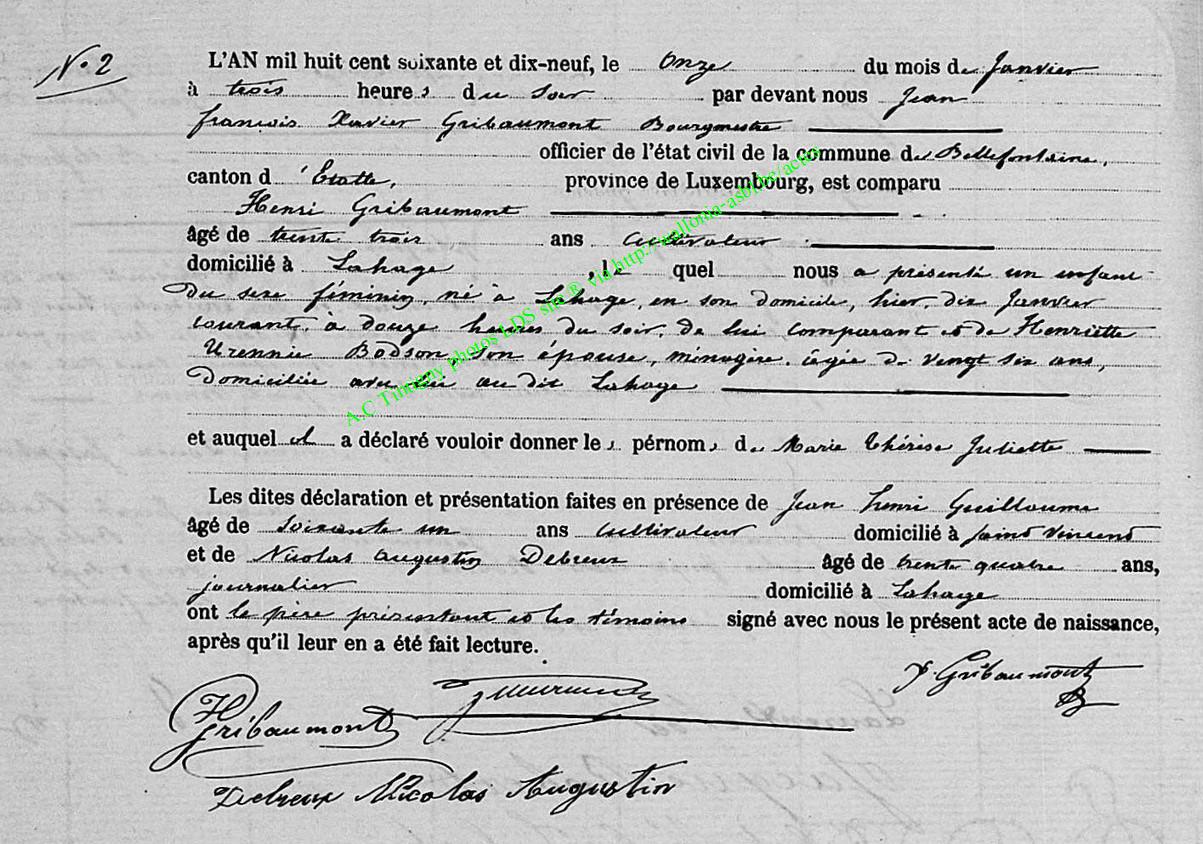 N° 2
L'AN mil huit cent soixante et dix-neuf, le Onze du mois de Janvier
à trois heures du soir par devant nous Jean
françois Xavier Gribaumont Bourgmestre
officier de l'état civil de la commune de Bellefontaine,
canton d'Etalle, province de Luxembourg, est comparu
Henri Gribaumont
âgé de trente trois ans cultivateur
domicilié à Lahage, le quel nous a présenté un enfant
du sexe féminin, né à Lahage, en son domicile, hier dix Janvier
courant, à douze heures du soir, de lui comparant et de Henriette
Bodson, son épouse, ménagère, âgée de vingt six ans,
domiciliée avec lui au dit Lahage
et auquel il a déclaré vouloir donner les pérnoms de Marie Thérèse Juliette
Les dites déclaration et présentation faites en présence de Jean henri Guillaume
âgé de soixante un ans cultivateur domicilié à saint Vincent
et de Nicolas augustin Debreux âgé de trente quatre ans,
journalier domicilié à Lahage
ont le père présentant et les témoins signé avec nous le présent acte de naissance,
après qu'il leur en a été fait lecture.
Gribaumont
H Gribaumont
Debreux Nicolas Augustin
A.C Tintigny photos LDS site ® via http://wallonia-asbl.be/actes